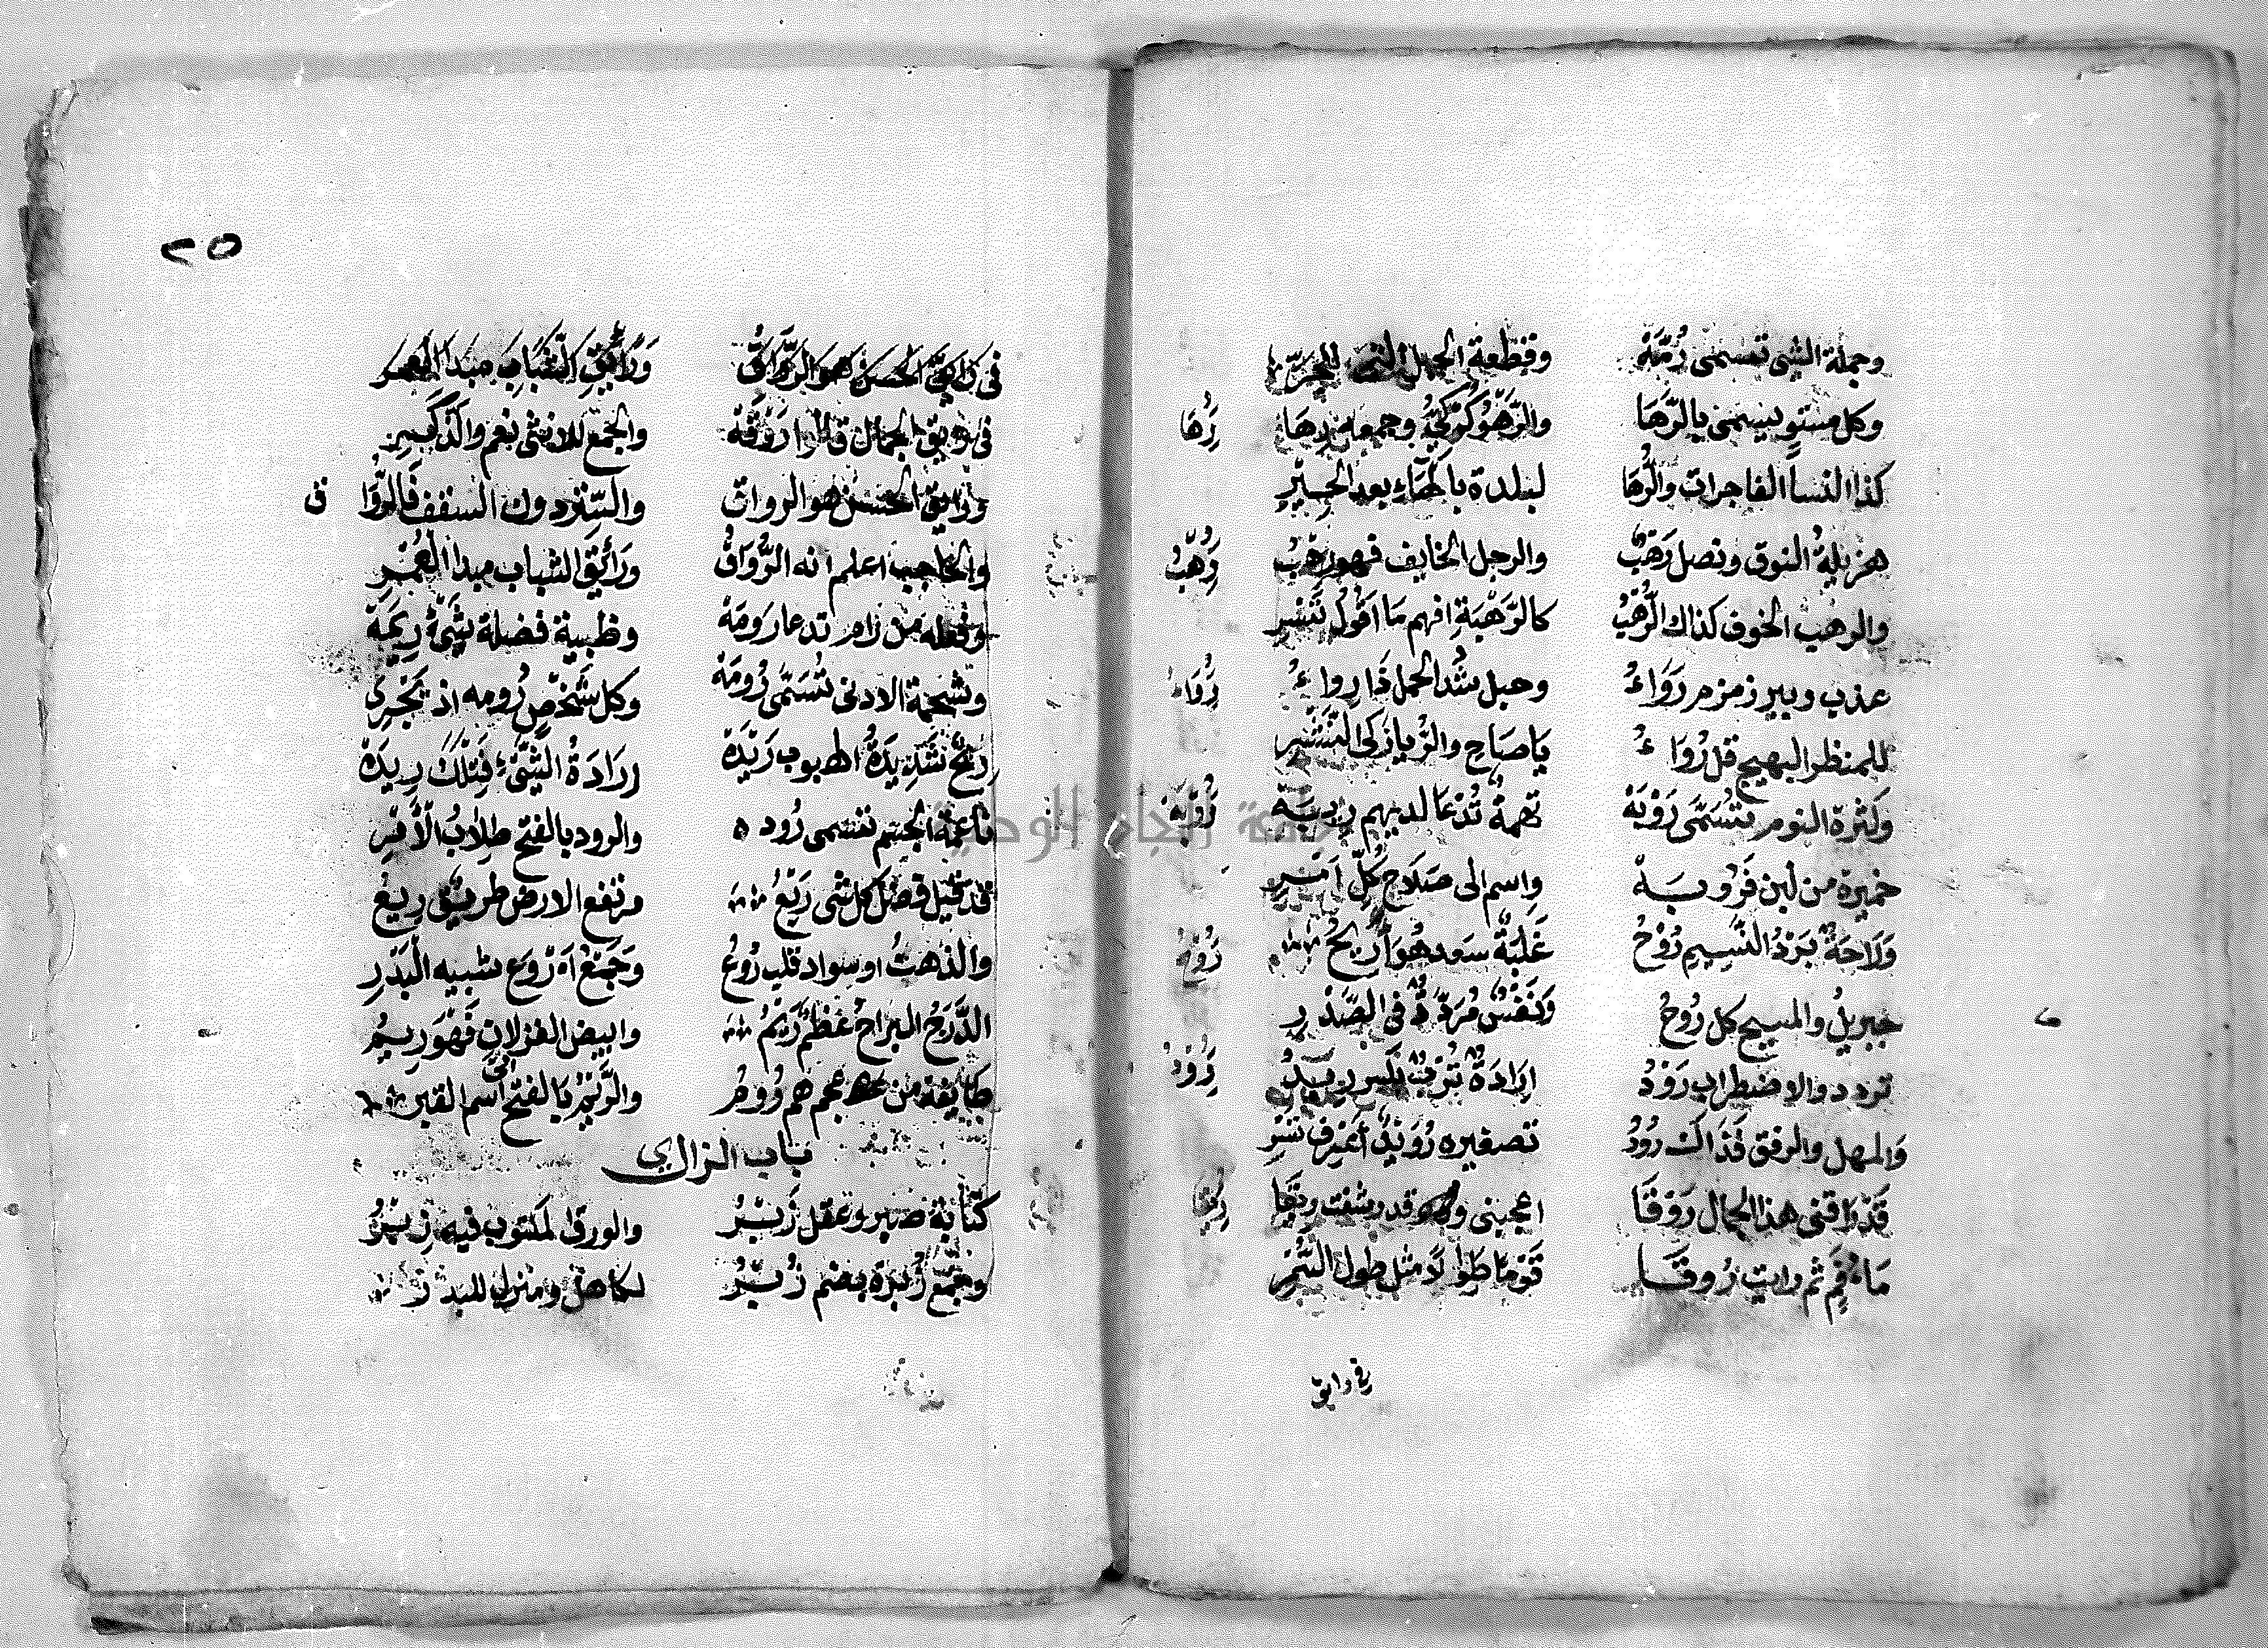 وجملة الشي تسمى رُمَّهْ وقطعة الحبل
وكل مستوٍ يسمى بالرَّهَا والرَّهْوُ كُرْكِيٌّ وجمعه رِهَا رُهَا
كذا النسا الفاجرات والرُّهَا لبلدة بالهَاءِ بعد
هزيلةُ النوق ونصل رَهْبُ والرجل الخايف فهو رِهْبُ رُهْبُ
والرهب الخوف كذاك الرُّهْبُ كالرَّهْبَةِ افهم مَا اقُولُ
عذب وبير زمزم رَوَاءُ وحبل شُد الحمل ذَا رِواءُ رُوَاءُ
للمنظر البهيج قل رُوَاءُ يَا صَاحِ
وكثرة النوم تُسَمَّى رَوْبَهْ تهمةٌ تُدْعَا لديهم رِيبَهْ رُوْبَهْ
خميرة من لبن فَرُوبَهْ واسم الى صَلَاحِ كُلِّ أمْرِ
وَرَاحَةٌ بَرْدُ النَّسِيمِ رَوْحُ غَلَبَةٌ سعد هُوَاءٌ رِيحُ رُوْحُ
جبريلُ والمسيح كل رُوحُ وَنَفَسٌ مُرَدَّدٌ فى الصَّدْرِ
تردد والاضطراب رَوْدُ ارَادَةٌ رِيدُ رُوْدُ
وَالمهل والرفق فَذَاكَ رُوْدُ تصغيره رُوَيْدٌ
قَدْ رَاقنى هذا الجمال رَوْقَا اعجبنى وقد رشفت رِيْقَا
ثم رايت رُوقَا قَوْمًا طِوَالًا مثل طول
فى رايق
٢٥
فى رَايقِ الحسن هو الرَّوَاقُ وَرَأْيِقِ الشَّبَابِ مبدا العمر
فى رايق الجمال قالوا رَوْقَهْ والجمع للانثى نعم والذكَرِ
ورايق الحسن هو الرواق والستر دون السقف قالروَا ق
والحاجب اعلم انه الرُّوَاقُ ورَأيق الشباب مبدا العُمْرِ
وفعله من رام تدعا رَومَهْ وظبية فضلة شيءٍ رِيمَهْ
وشحمة الاذن تُسَمَّى رُومَهْ وكل شَخْصٍ رُومه اذ يَجْرِي
رِيحٌ شَدِيدَةُ الهبوب رَيْدَهْ ارَادَةُ الشَّيْءِ فَتِلْكَ رِيدَهْ
ناعمة الجسم تسمى رُوده والرود بالفتح طِلَابُ الأَمْرِ
قد قيل فضل كل شى رَيْعُ مرتفع الارض طريق رِيعُ
والذهنُ او سواد قلب رُوعُ وَجَمْعُ أَرْوَع شبيه الْبَدْرِ
الدَّرَجُ البراحُ عَظْمٌ رَيْمُ والبيض الغزلان فَهْوَ رِيمُ
طَايفة من عجم هم رُومُ والرَّيْمُ بالفتح اسم القبر
باب الزاى
كتابة صبر وعقل زَبْرُ والورق المكتوب فيه زِبْرُ
وجَمْعُ زُبرة بضم زُبْرُ لكاهل ومنزل للبدر